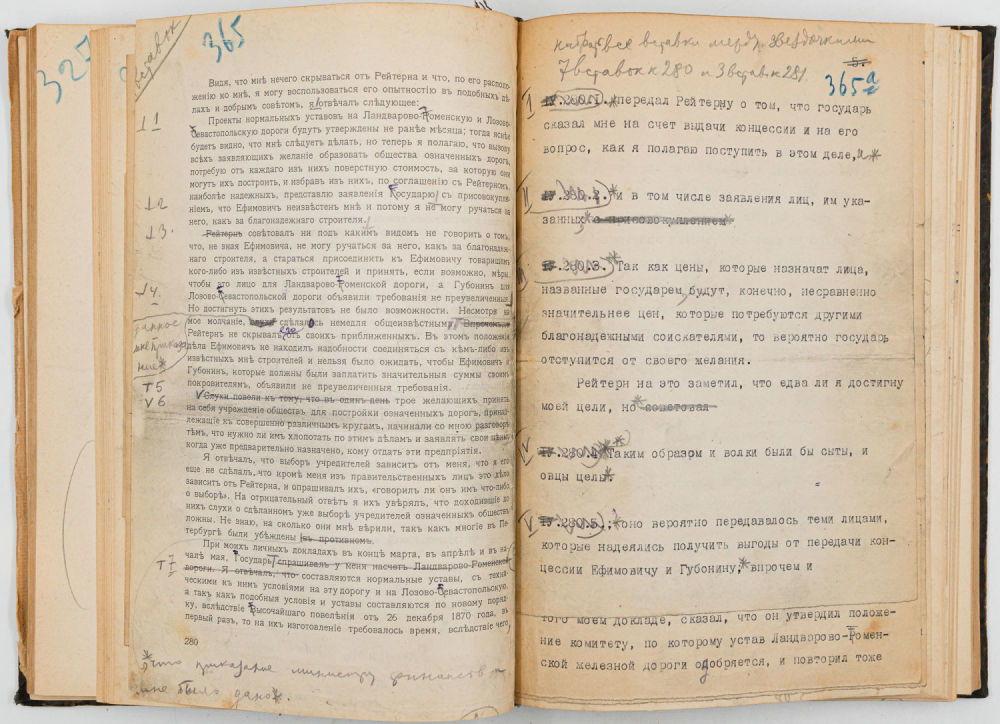 327
вставок
365
Видя, что мнѣ нечего скрываться отъ Рейтерна и что, по его располо-
женію ко мнѣ, я могу воспользоваться его опытностію въ подобныхъ дѣ-
лахъ и добрымъ совѣтомъ, я отвѣчалъ слѣдующее:
Проекты нормальныхъ уставовъ на Ландварово-Роменскую и Лозово-
Севастопольскую дороги будутъ утверждены не ранѣе мѣсяца; тогда яснѣе
будетъ видно, что мнѣ слѣдуетъ дѣлать, но теперь я полагаю, что вызову
всѣхъ заявляющихъ желаніе образовать общества означенныхъ дорогъ,
потребую отъ каждаго изъ нихъ поверстную стоимость, за которую они
могутъ ихъ построить, и избравъ изъ нихъ, по соглашенію съ Рейтерномъ,
наиболѣе надежныхъ, представлю заявленія Государю съ присовокупле-
ніемъ, что Ефимовичъ неизвѣстенъ мнѣ и потому я не могу ручаться за
него, какъ за благонадежнаго строителя.
Рейтернъ совѣтовалъ ни подъ какимъ видомъ не говорить о томъ,
что, не зная Ефимовича, не могу ручаться за него, какъ за благонадеж-
наго строителя, а стараться присоединить къ Ефимовичу товарищемъ
кого-либо изъ извѣстныхъ строителей и принять, если возможно, мѣры,
чтобы это лицо для Ландварово-Роменской дороги, а Губонинъ для
Лозово-Севастопольской дороги объявили требованія не преувеличенныя.
Но достигнуть этихъ результатовъ не было возможности. Несмотря на
мое молчаніе, слухи сдѣлались немедля общеизвѣстными. Впрочемъ
Рейтернъ не скрывалъ отъ своихъ приближенныхъ. Въ этомъ положеніи
дѣла Ефимовичъ не находилъ надобности соединяться съ кѣмъ-либо изъ
извѣстныхъ мнѣ строителей и нельзя было ожидать, чтобы Ефимовичъ и
Губонинъ, которые должны были заплатить значительныя суммы своимъ
покровителямъ, объявили не преувеличенныя требованія.
Слухи повели къ тому, что въ одинъ день трое желающихъ принять
на себя учрежденіе обществъ для постройки означенныхъ дорогъ, принад-
лежащіе къ совершенно различнымъ кругамъ, начинали со мною разговоръ
тѣмъ, что нужно ли имъ хлопотать по этимъ дѣламъ и заявлять свои цѣны,
когда уже предварительно назначено, кому отдать эти предпріятія.
Я отвѣчалъ, что выборъ учредителей зависитъ отъ меня, что я его
еще не сдѣлалъ, что кромѣ меня изъ правительственныхъ лицъ это дѣло
зависитъ отъ Рейтерна, и опрашивалъ ихъ, «говорилъ ли онъ имъ что-либо
о выборѣ». На отрицательный отвѣтъ я ихъ увѣрялъ, что доходившіе до
нихъ слухи о сдѣланномъ уже выборѣ учредителей означенныхъ обществъ
ложны. Не знаю, на сколько они мнѣ вѣрили, такъ какъ многіе въ Пе-
тербургѣ были убѣждены въ противномъ.
При моихъ личныхъ докладахъ въ концѣ марта, въ апрѣлѣ и въ на-
чалѣ мая, Государь спрашивалъ у меня насчетъ Ландварово-Роменской
дороги. Я отвѣчалъ, что составляются нормальные уставы, съ техни-
ческими къ нимъ условіями на эту дорогу и на Лозово-Севастопольскую,
а такъ какъ подобныя условія и уставы составляются по новому поряд-
ку, вслѣдствіе Высочайшаго повелѣнія отъ 26 декабря 1870 года, въ
первый разъ, то на ихъ изготовленіе требовалось время, вслѣдствіе чего
280
что приказание министру финансов
мне было дано.
набрать все вставки между звездочками
7 вставок к 280 и 3 вставки к 281.
5.
365а
I IУ.280.I. *передал Рейтерну о том, что государь
сказал мне на счет выдачи концессии и на его
вопрос, как я полагаю поступить в этом деле, и*
II IУ.280.2. *и в том числе заявления лиц, им ука-
занных* с присовокуплением*
IУ.280.3. *Так как цены, которые назначат лица,
названные государем, будут, конечно, несравненно
значительнее цен, которые потребуются другими
благонадежными соискателями, то вероятно государь
отступится от своего желания.
Рейтерн на это заметил, что едва ли я достигну
моей цели, но* советовал
IV IУ.280.4. *Таким образом и волки были бы сыты, и
овцы целы*.
V IУ.280.5. *оно вероятно передавалось теми лицами,
которые надеялись получить выгоды от передачи кон-
цессии Ефимовичу и Губонину;* впрочем и
того моем докладе, сказал, что он утвердил положе-
ние комитету, по которому устав Ландварово-Ромен-
ской железной дороги одобряется, и повторил тоже